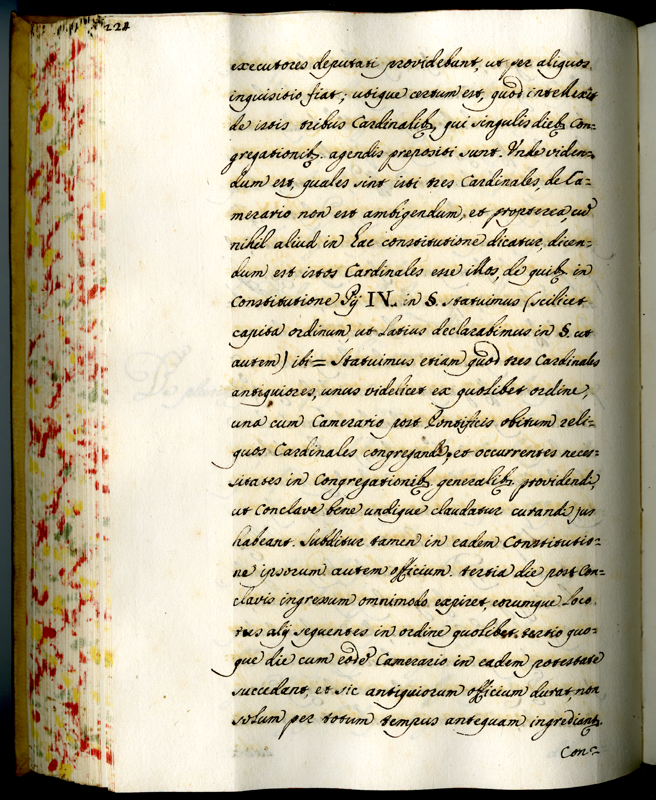 224
executores deputati providebant, ut per aliquos
inquisitio fiat; utique certum est, quod intellexit
de istis tribus Cardinalib₉, qui singulis dieb₉ Con=
gregationib₉. agendis prepositi sunt. Unde viden=
dum est, quales sint isti tres Cardinales, de Ca=
merario non est ambigendum, et propterea cũ
nihil aliud in hac constitutione dicatur, dicen=
dum est istos Cardinales esse illos, de quib₉ in
Constitutione Pij IV. in §. statuimus (scilicet
capita ordinum, ut latius declarabimus in §. ut
autem) ibi = Statuimus etiam quod tres Cardinales
antiquiores, unus videlicet ex quolibet ordine,
una cum Camerario post Pontificis obitum reli=
quos Cardinales congregandi, et occurrentes neces=
sitates in Congregationib₉ generalib₉ providendi,
ut Conclave bene undique claudatur curandi jus
habeant. Subditur tamen in eadem Constitutio=
ne ipsorum autem officium tertia die post Con=
clavis ingressum omnimodo expiret, eorumque loco
tres alij sequentes in ordine quolibet tertio quo=
que die cum eodẽ Camerario in eadem potestate
succedant, et sic antiquiorum officium durat non
solum per totum tempus antequam ingrediant₉
Con=